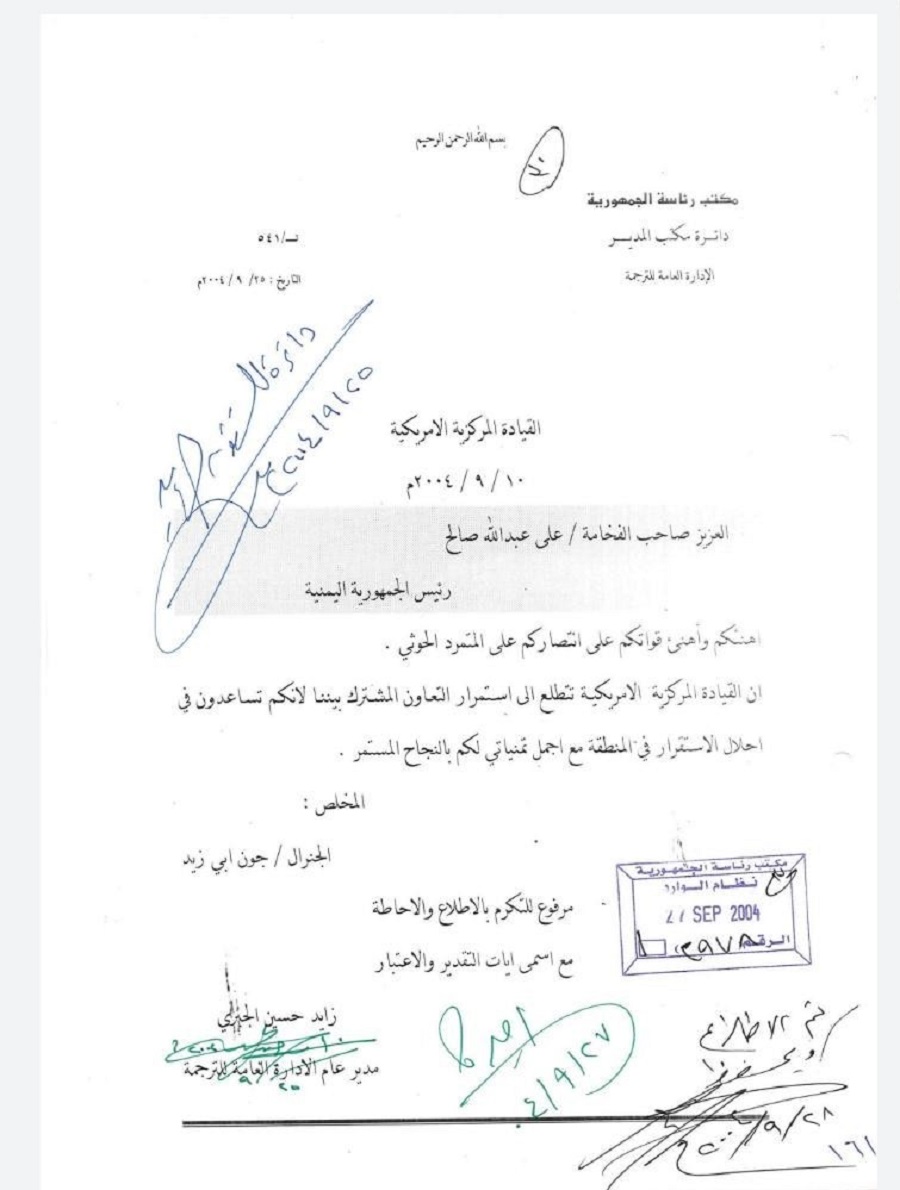 بسم الله الرحمن الرحيم
مكتب رئاسة الجمهورية
دائرة مكتب المدير
الإدارة العامة للترجمة
تـ/٥٤١
التاريخ : ٢٥/ ٩ / ٢٠٠٤م
٢٠٠٤/٩/٢٥
القيادة المركزية الامريكية
١٠ / ٩ / ٢٠٠٤م
العزيز صاحب الفخامة / على عبدالله صالح
رئيس الجمهورية اليمنية
اهنئكم وأهنئ قواتكم على انتصاركم على المتمرد الحوثي .
ان القيادة المركزية الامريكية تتطلع الى استمرار التعاون المشترك بيننا لانكم تساعدون في
احلال الاستقرار في المنطقة مع اجمل تمنياتي لكم بالنجاح المستمر .
المخلص :
الجنوال / جون ابي زيد
مرفوع للتكرم بالاطلاع والاحاطة
مع اسمى ايات التقدير والاعتبار
مكتب رئاسة الجمهورية
نظام الوارد
27 SEP 2004
الرقم
زايد حسين الجبري
مدير عام الادارة العامة للترجمة
٤/٩/٢٧
تم الاطلاع
ويحفظ
١٦١